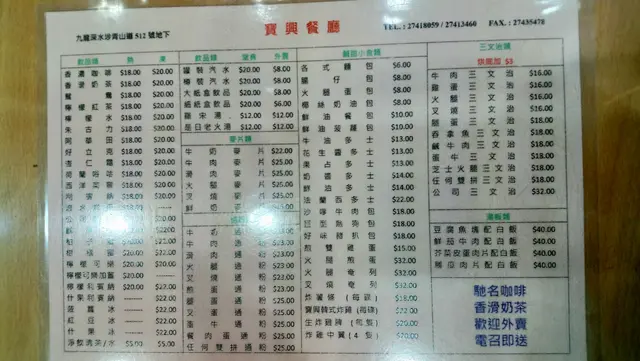 寶興餐廳
九龍深水埗青山道 512 號地下
TEL. : 27418059 / 27413460 FAX. : 27435478
飲品類 熱 凍
香濃咖啡 $18.00 $20.00
香滑奶茶 $18.00 $20.00
檸檬紅茶 $18.00 $20.00
檸檬水 $18.00 $20.00
朱古力 $20.00
阿華田 $20.00
好立克 $18.00 $20.00
杏仁霜 $18.00 $20.00
西洋菜蜜 $20.00
檸檬可樂 $20.00
檸檬可樂加蜜 $20.00
檸檬利賓納 $20.00
什果利賓納 $22.00
菠蘿冰 $22.00
紅豆冰 $22.00
什果冰 $22.00
飲品類 堂食 外賣
罐裝汽水 $20.00 $8.00
樽裝汽水 $20.00 $8.00
大紙盒飲品 $20.00 $8.00
細紙盒飲品 $20.00 $6.00
羅宋湯 $12.00 $12.00
是日老火湯 $12.00 $12.00
麥片類
牛奶麥片 $22.00
牛肉麥片 $25.00
滑肉麥片 $25.00
火腿麥片 $25.00
叉燒麥片 $25.00
鮮蛋麥片 $25.00
牛奶通粉
牛肉通粉 $23.00
滑肉通粉 $23.00
火腿通粉 $23.00
叉燒通粉 $23.00
煎蛋通粉 $23.00
腿蛋通粉 $25.00
叉蛋通粉 $25.00
蛋牛通粉 $25.00
餐肉蛋通粉 $25.00
任何雙拼通粉 $25.00
各式麵包 $6.00
腸仔包 $8.00
火腿蛋包 $10.00
椰絲奶油包 $10.00
鮮油餐包 $10.00
鮮油菠蘿包 $10.00
牛油多士 $13.00
花生醬多士 $13.00
果占多士 $13.00
奶醬多士 $14.00
鮮油多士 $14.00
法蘭西多士 $22.00
沙嗲牛肉包 $18.00
好味豬扒包 $18.00
煎雙雞蛋 $15.00
火腿煎蛋 $32.00
火腿奄列 $32.00
叉燒奄列 $32.00
炸薯條 (每碟) $18.00
寶興韓式炸雞 (每碟) $22.00
生炸雞脾 (每隻)
三文治類
烘底加 $3
牛肉三文治 $16.00
雞蛋三文治 $16.00
火腿三文治 $16.00
叉燒三文治 $16.00
腿蛋三文治 $18.00
吞拿魚三文治 $18.00
鹹牛肉三文治 $18.00
蛋牛三文治 $18.00
芝士火腿三文治 $18.00
任何雙拼三文治 $18.00
公司三文治 $32.00
湯飯類
豆腐魚塊配白飯 $40.00
鮮茄牛肉配白飯 $40.00
芥菜皮蛋肉片配白飯 $40.00
馳名咖啡
香滑奶茶
歡迎外賣
電召即送